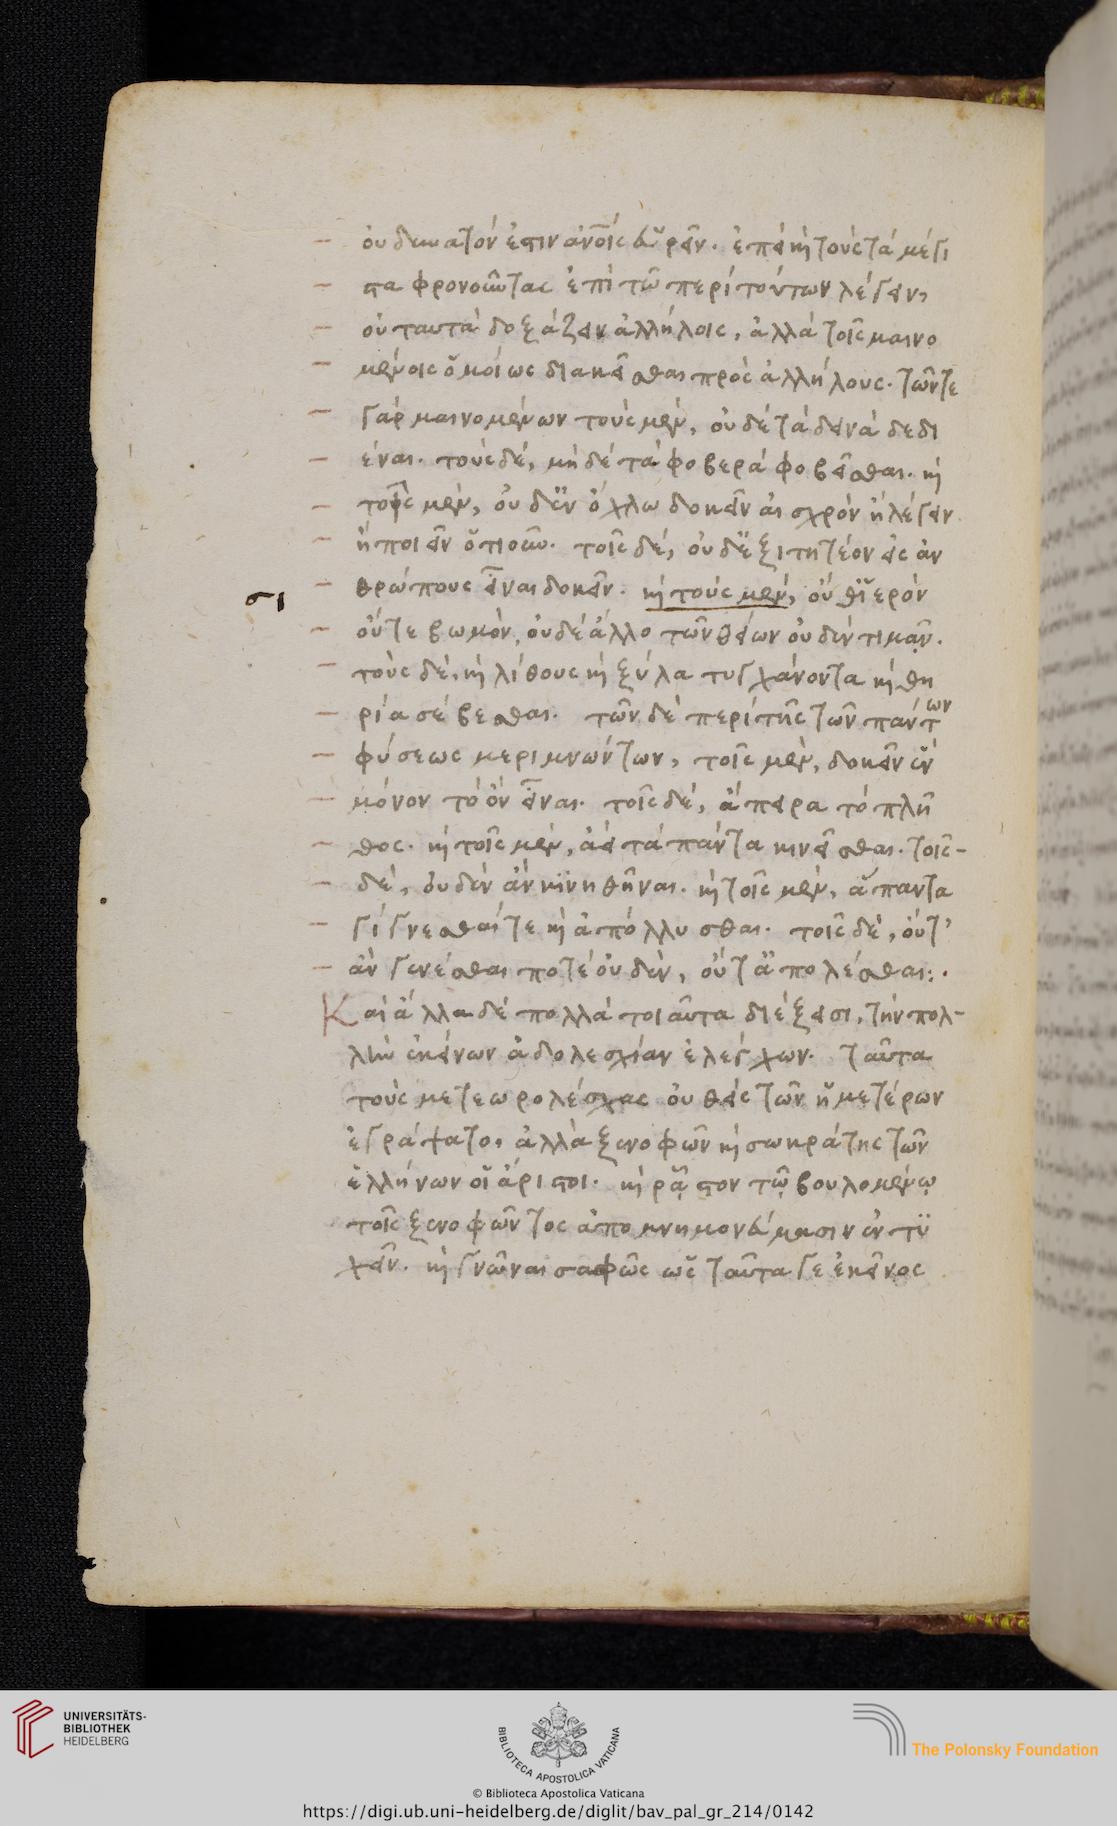 οὐ δυνατόν ἐστιν ἀνοῖς εὑρεῖν. ἐπεὶ καὶ τοὺς τὰ μέγι
στα φρονοῦντας ἐπὶ τῶ περὶ τούτων λέγειν,
οὐ ταυτὰ δοξάζειν ἀλλήλοις, ἀλλὰ τοῖς μαινο
μένοις ὁμοίως διακεῖσθαι πρὸς ἀλλήλους. τῶν τε
γὰρ μαινομένων τοὺς μὲν, οὐδὲ τὰ δεινὰ δεδι
έναι. τοὺς δὲ, μὴ δὲ τὰ φοβερὰ φοβεῖσθαι. καὶ
τοῖς μὲν, οὐδ' ἐν ὄχλω δοκεῖν αἰσχρὸν ἢ λέγειν
ἢ ποιεῖν ὁτιοῦν. τοῖς δὲ, οὐδ' ἐξιτητέον εἰς ἀν
θρώπους εἶναι δοκεῖν. καὶ τοὺς μὲν, οὔθ' ἱερὸν
σι
οὔτε βωμὸν, οὐδὲ ἄλλο τῶν θείων οὐδὲν τιμᾶν.
τοὺς δὲ, καὶ λίθους καὶ ξύλα τυγχάνοντα καὶ θη
ρία σέβεσθαι. τῶν δὲ περὶ τῆς τῶν πάντων
φύσεως μεριμνώντων, τοῖς μὲν, δοκεῖν ἓν
μόνον τὸ ὂν εἶναι. τοῖς δὲ, ἄπειρα τὸ πλῆ
θος. καὶ τοῖς μὲν, ἀεὶ τὰ πάντα κινεῖσθαι. τοῖς-
δὲ, οὐδὲν ἂν κινηθῆναι. καὶ τοῖς μὲν, ἅπαντα
γίγνεσθαί τε καὶ ἀπόλλυσθαι. τοῖς δὲ, οὔτ'
ἂν γενέσθαι ποτὲ οὐδὲν, οὔτ' ἀπολέσθαι:.
Καὶ ἄλλα δὲ πολλὰ τοιαῦτα διέξεισι, τὴν πολ-
λὴν ἐκείνων ἀδολεσχίαν ἐλέγχων. ταῦτα
τοὺς μετεωρολέσχας οὐθ' εἷς τῶν ἡμετέρων
ἐγράψατο, ἀλλὰ ξενοφῶν καὶ σωκράτης τῶν
ἑλλήνων οἱ ἄριστοι. καὶ ῥᾷστον τῷ βουλομένῳ
τοῖς ξενοφῶντος ἀπομνημονεύμασιν ἐντυ
χεῖν. καὶ γνῶναι σαφῶς ὡς ταῦτα γε ἐκεῖνος
UNIVERSITÄTS-
BIBLIOTHEK
HEIDELBERG
BIBLIOTECA APOSTOLICA VATICANA
The Polonsky Foundation
© Biblioteca Apostolica Vaticana
https://digi.ub.uni-heidelberg.de/diglit/bav_pal_gr_214/0142